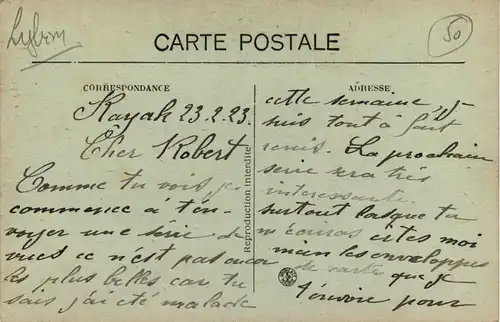 50
CARTE POSTALE
CORRESPONDANCE
Rayak 23.2.23.
Cher Robert
Comme tu vois, je
commence à t'en-
voyer une série de
vues ce n'est pas encor
les plus belles car tu
sais j'ai été malade
Reproduction interdite
ADRESSE
cette semaine, je
suis tout à fait
remis. La prochaine
série sera très
intéressante.
surtout lorsque tu
m'écriras
moi les enveloppes
de cartes que je
t'envoie pour